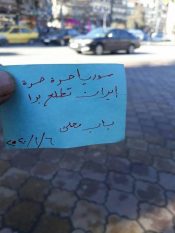 سوريا حرة حرة
إيران تطلع برا
باب مصلى